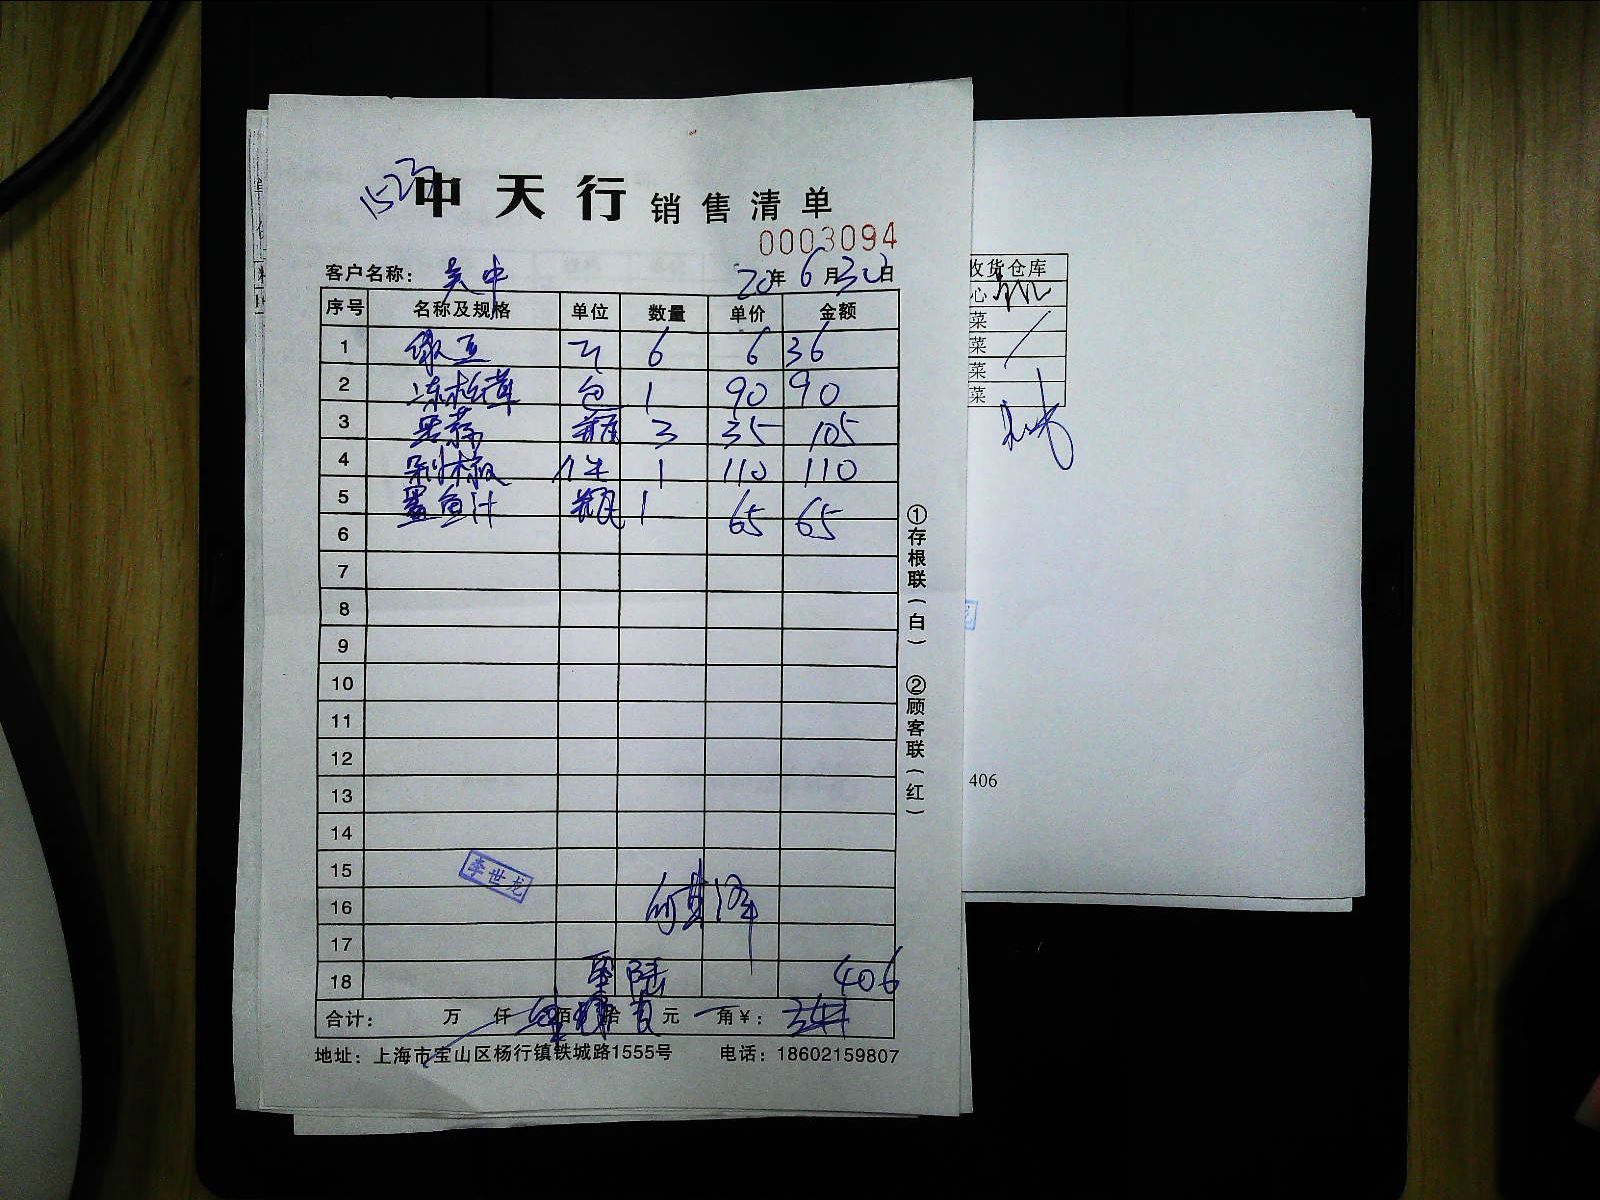 1523
中天行 销售清单
0003094
客户名称： 吴中 20年6月30日
序号 名称及规格 单位 数量 单价 金额
1 绿豆 斤 6 6 36
2 冻松茸 包 1 90 90
3 瓶 3 35 105
4 剁椒 件 1 110 110
5 鲍鱼汁 瓶 1 65 65
6
7
8
9
10
11
12
13
14
15
李世龙
16
17
18 零陆 406
合计： 万 仟 佰 拾 元 角 ¥：
地址：上海市宝山区杨行镇铁城路1555号 电话：18602159807
①存根联（白） ②顾客联（红）
收货仓库
心
菜
菜
菜
菜
406